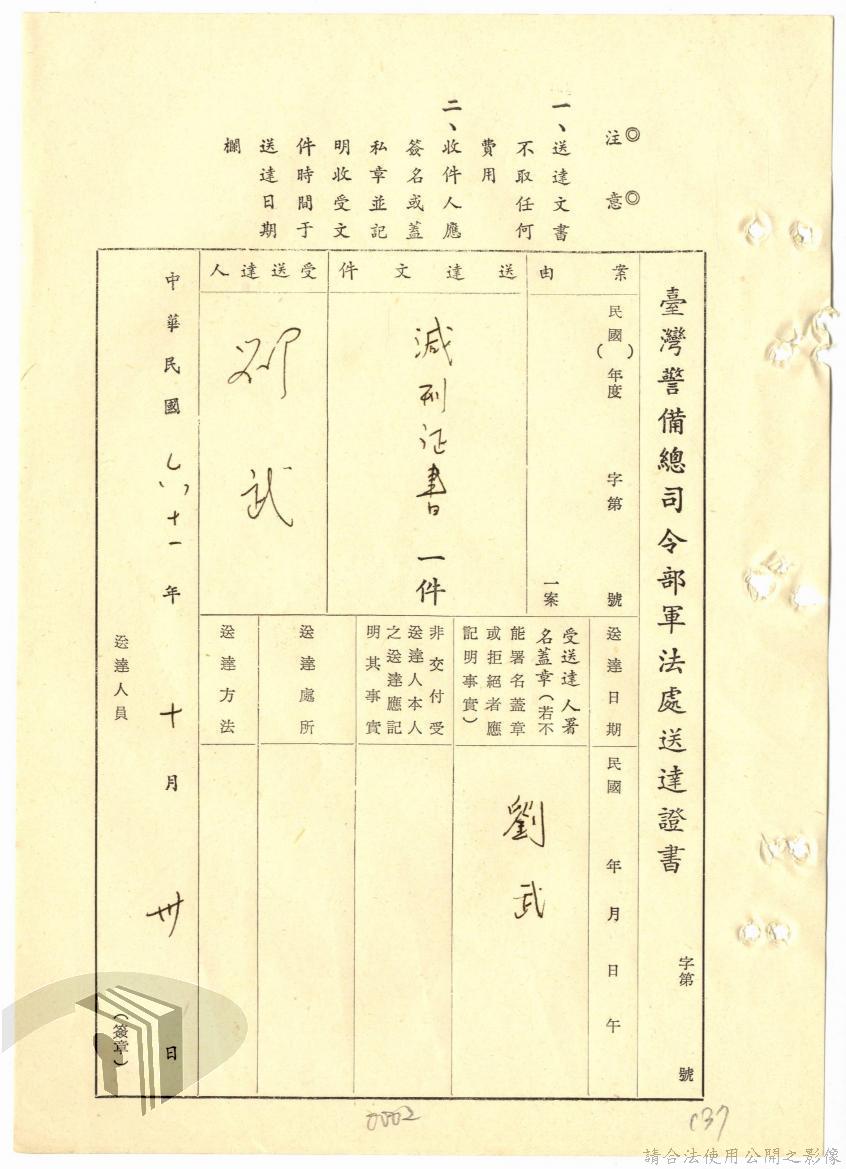 ◎注意◎
一、送達文書
不取任何
費用
二、收件人應
簽名或蓋
私章並記
明收受文
件時間于
送達日期
欄
臺灣警備總司令部軍法處送達證書
字第 號
案由
民國( )年度 字第 號
一案
送達文件
減刑证書一件
受送達人
劉武
送達日期
民國 年 月 日 午
受送達人署
名蓋章(若不
能署名蓋章
或拒絕者應
記明事實)
劉武
非交付受
送達人本人
之送達應記
明其事實
送達處所
送達方法
中華民國六十一年十月卅日
送達人員 (簽章)
0002
137
請合法使用公開之影像